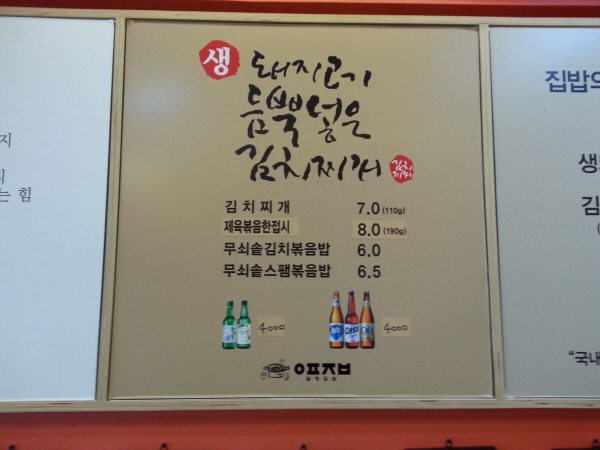 생
돼지고기
듬뿍 넣은
김치찌개
김치
찌개
김치찌개 7.0 (110g)
제육볶음한접시 8.0 (190g)
무쇠솥김치볶음밥 6.0
무쇠솥스팸볶음밥 6.5
4.000
4.000
지
는 힘
집밥의
생
김
"국내